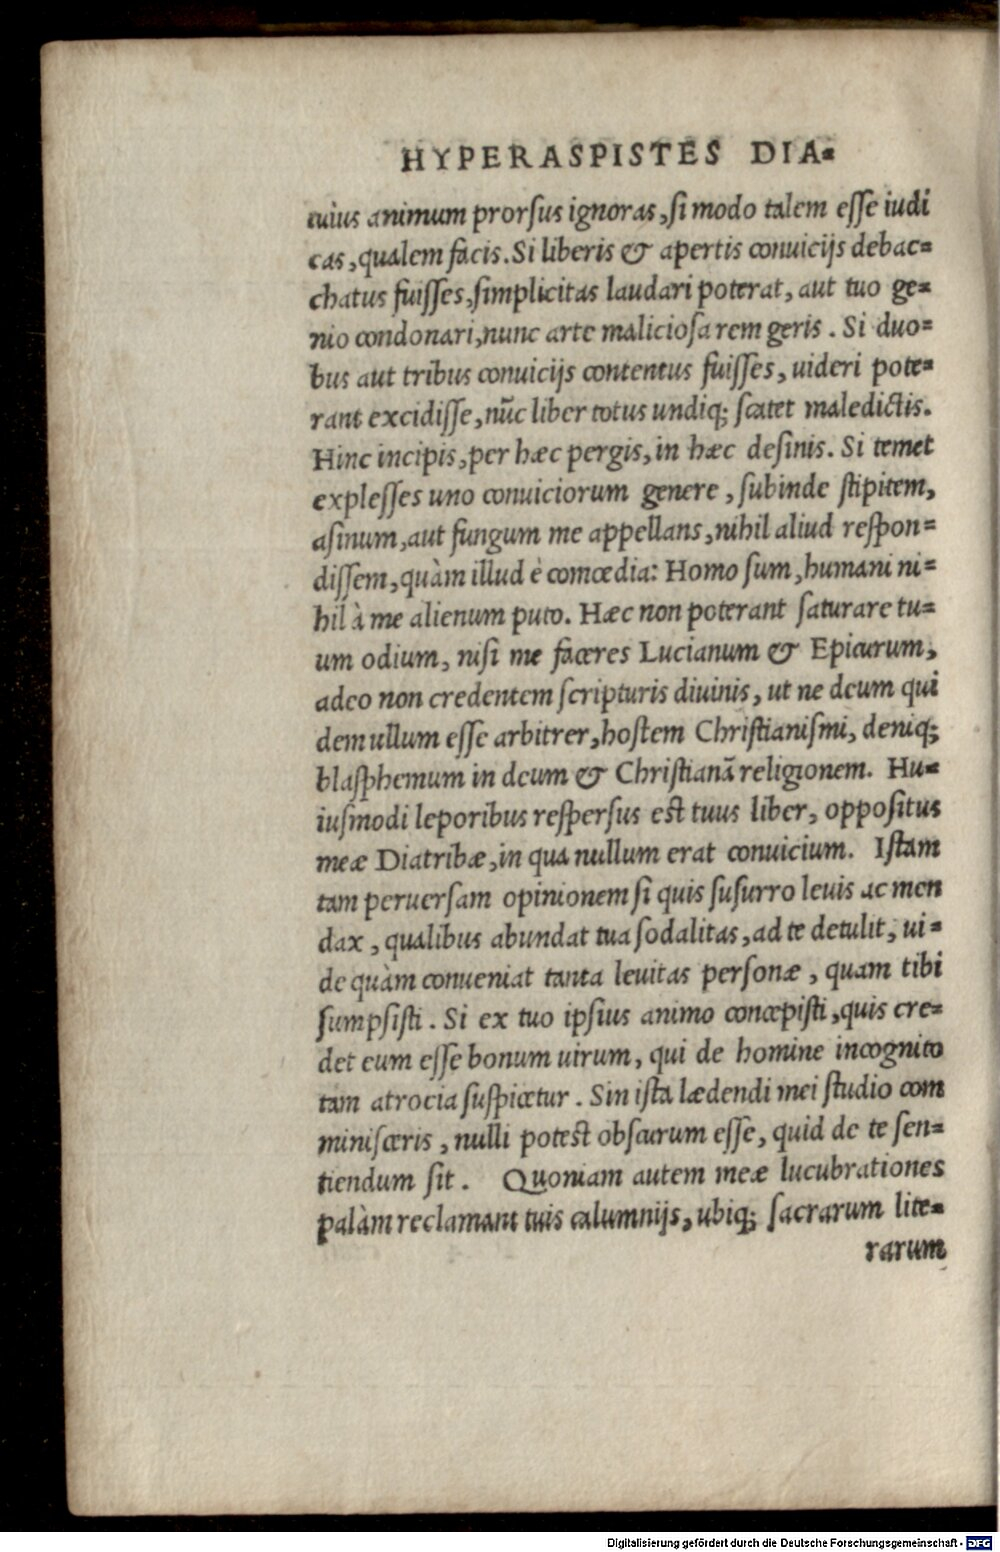 HYPERASPISTES DIA-
cuius animum prorſus ignoras, ſi modo talem eſſe iudi
cas, qualem facis. Si liberis & apertis conuicijs debac-
chatus fuiſſes, ſimplicitas laudari poterat, aut tuo ge-
nio condonari, nunc arte malicioſa rem geris. Si duo-
bus aut tribus conuicijs contentus fuiſſes, uideri pote-
rant excidiſſe, nũc liber totus undiq; ſcatet maledictis.
Hinc incipis, per hæc pergis, in hæc deſinis. Si temet
expleſſes uno conuiciorum genere, ſubinde ſtipitem,
aſinum, aut fungum me appellans, nihil aliud reſpon-
diſſem, quàm illud è comœdia: Homo ſum, humani ni-
hil à me alienum puto. Hæc non poterant ſaturare tu-
um odium, niſi me faceres Lucianum & Epicurum,
adeo non credentem ſcripturis diuinis, ut ne deum qui
dem ullum eſſe arbitrer, hoſtem Chriſtianiſmi, deniq;
blaſphemum in deum & Chriſtianã religionem. Hu-
iuſmodi leporibus reſperſus eſt tuus liber, oppoſitus
meæ Diatribæ, in qua nullum erat conuicium. Iſtam
tam peruerſam opinionem ſi quis ſuſurro leuis ac men
dax, qualibus abundat tua ſodalitas, ad te detulit, ui-
de quàm conueniat tanta leuitas perſonæ, quam tibi
ſumpſiſti. Si ex tuo ipſius animo concepiſti, quis cre-
det eum eſſe bonum uirum, qui de homine incognito
tam atrocia ſuſpicetur. Sin iſta lædendi mei ſtudio com
miniſceris, nulli poteſt obſcurum eſſe, quid de te ſen-
tiendum ſit. Quoniam autem meæ lucubrationes
palàm reclamant tuis calumnijs, ubiq; ſacrarum lite-
rarum
Digitalisierung gefördert durch die Deutsche Forschungsgemeinschaft - DFG